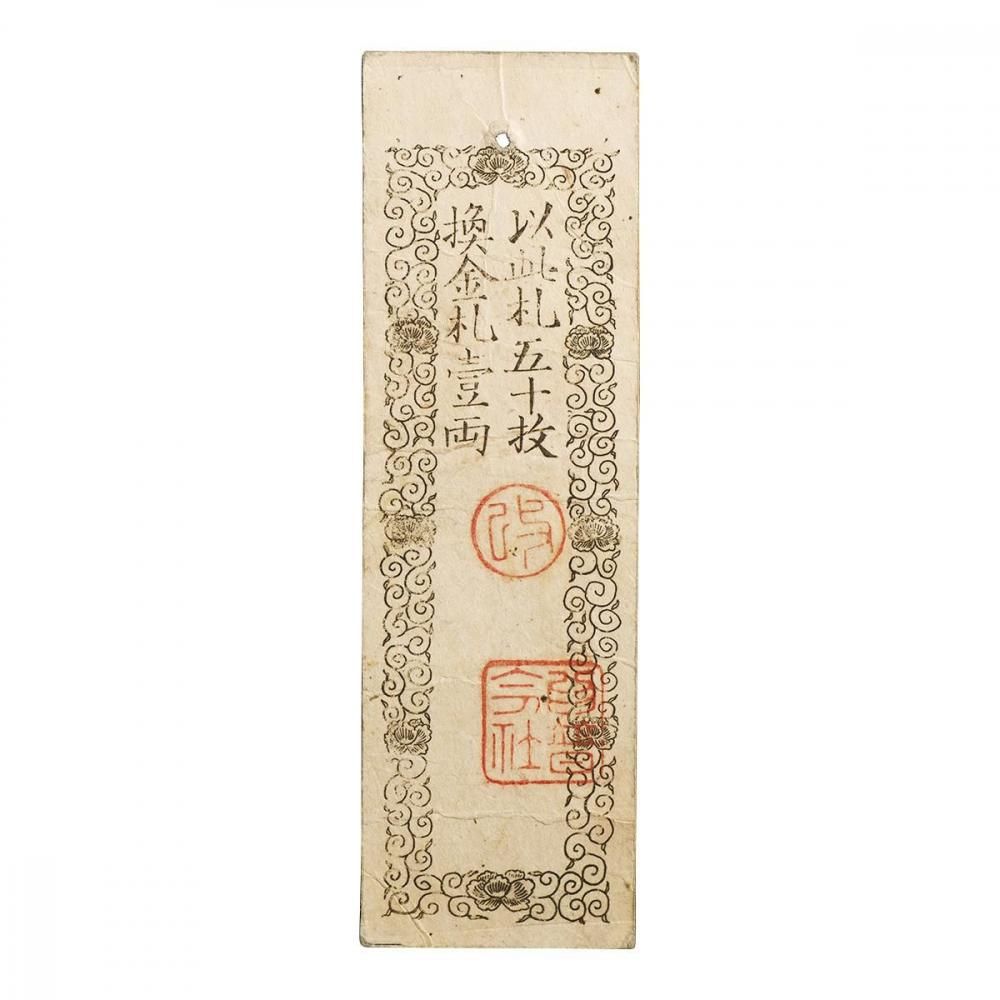 以此札五十枚
換金札壹両
改
会社